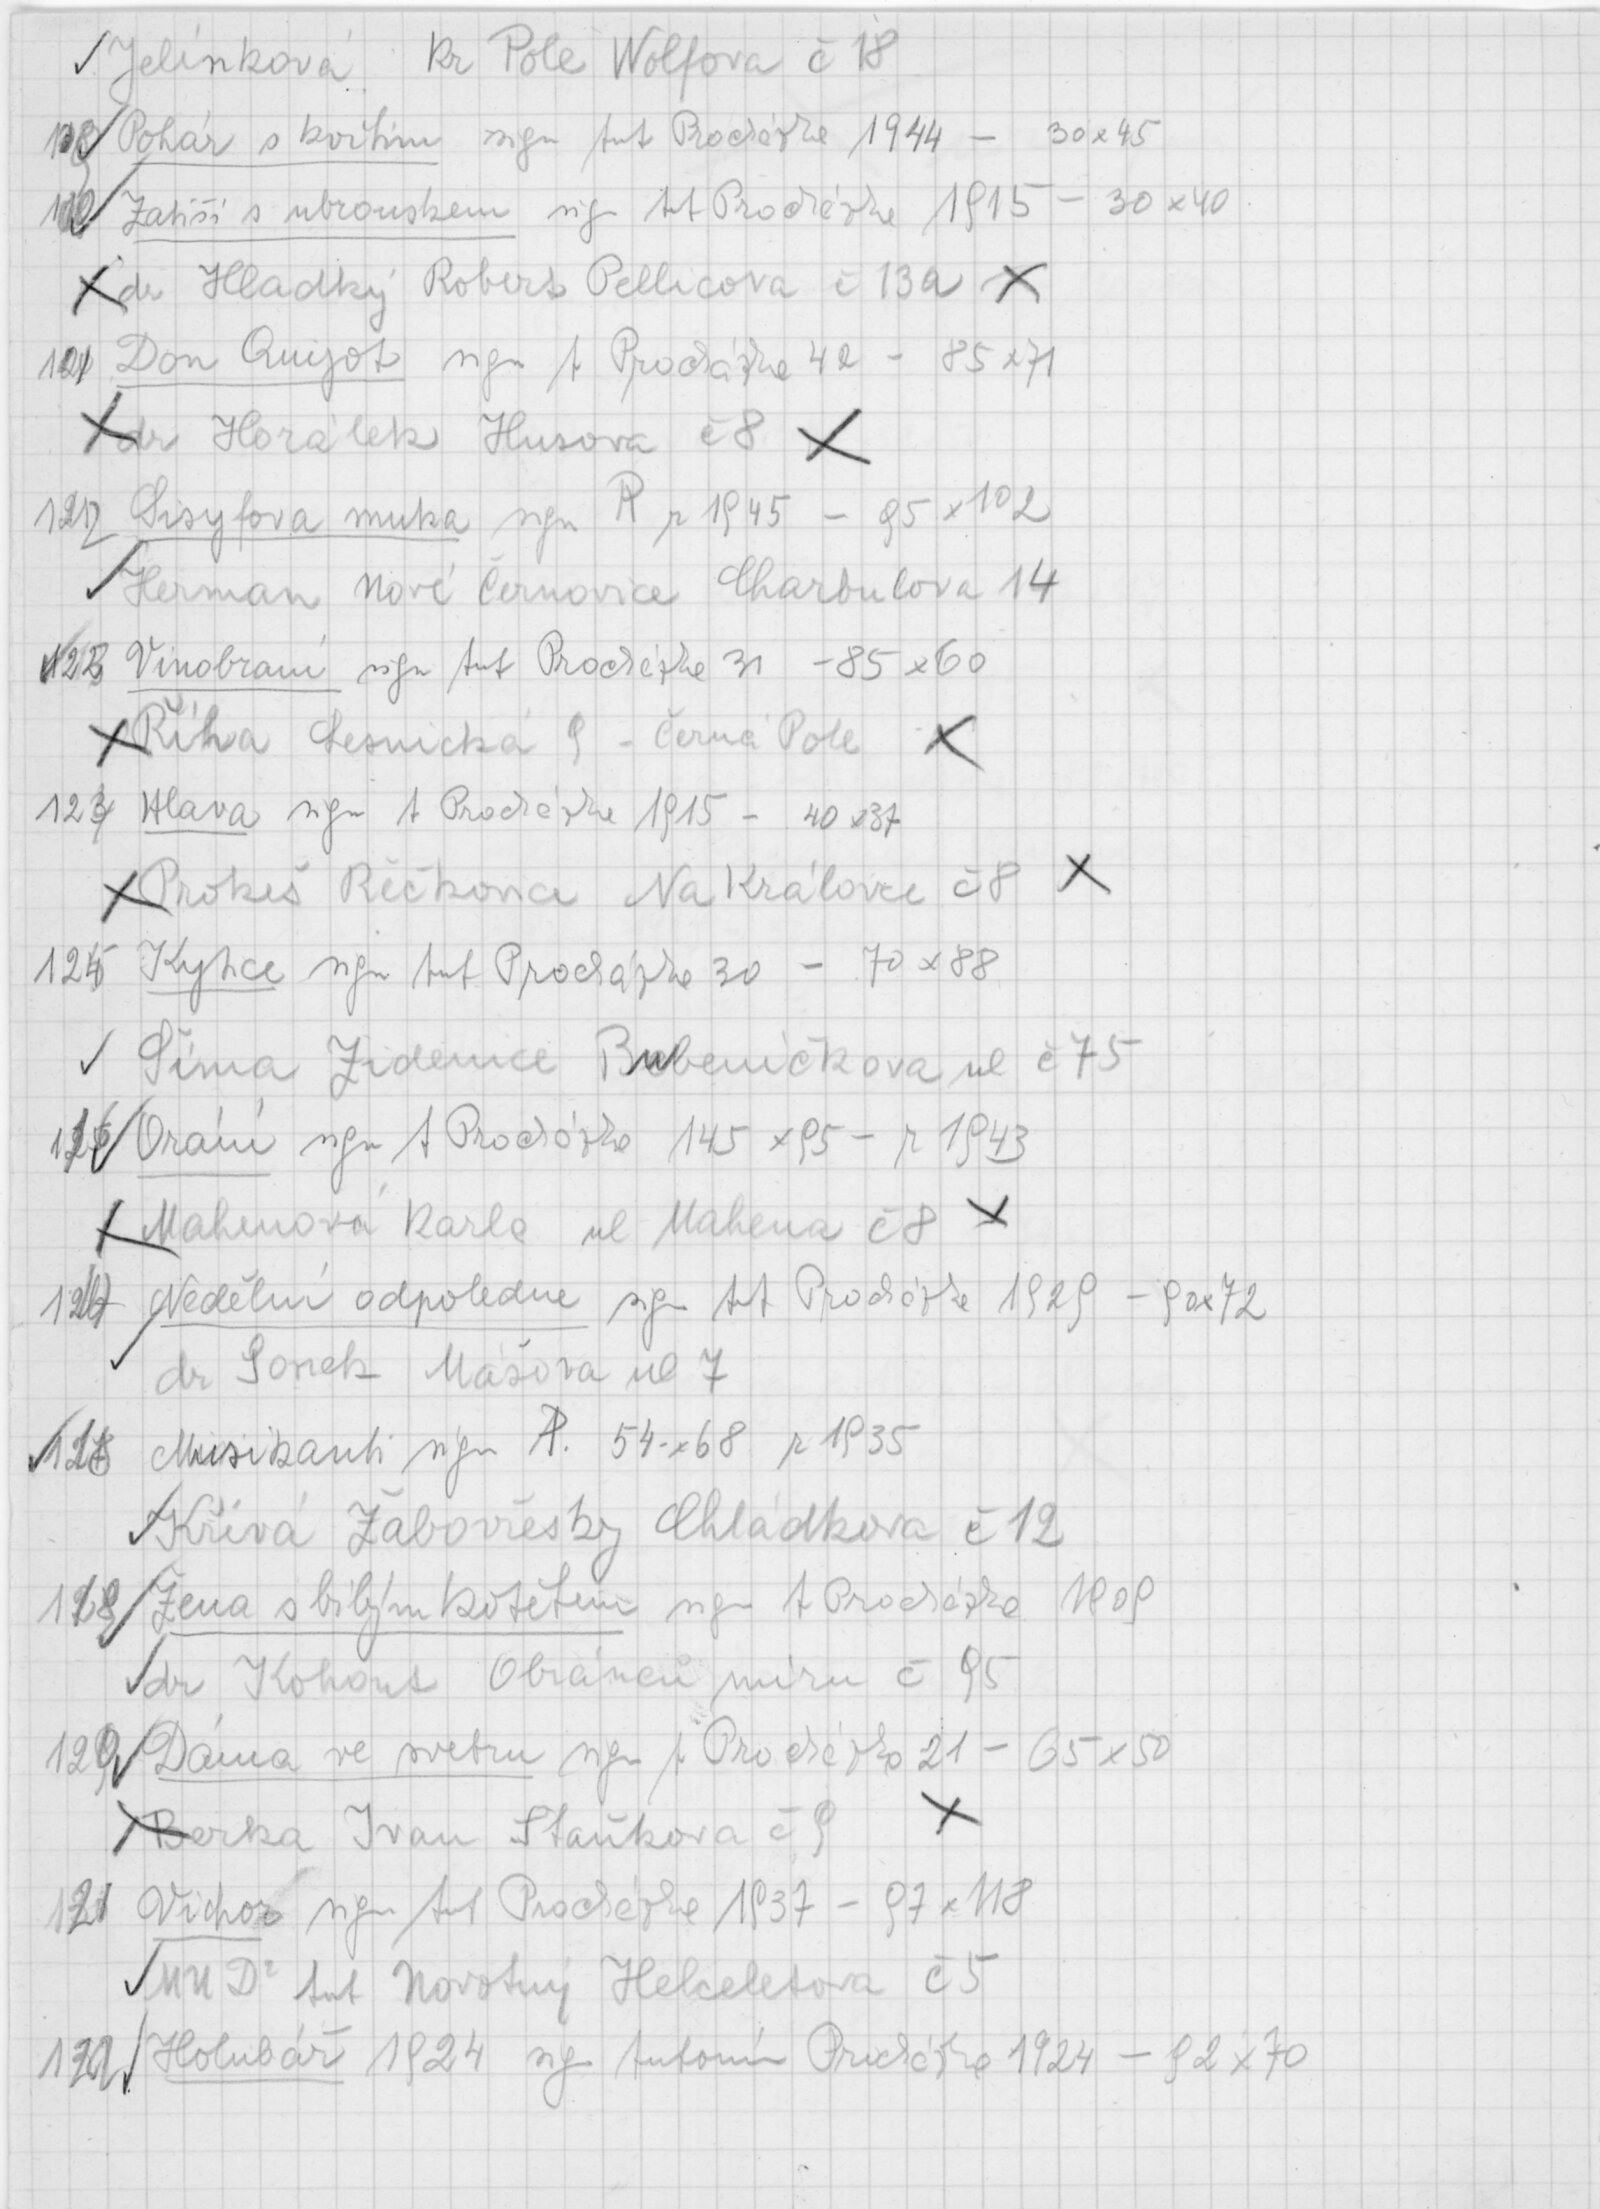 Jelínková Kr Pole Wolfova č 18
Pohár s kvítím sign Ant Procházka 1944 - 30x45
Zátiší s ubrouskem sign Ant Procházka 1915 - 30x40
dr Hladký Robert Pellicova č 13a
121 Don Quijot sign A Procházka 42 - 85x71
dr Horálek Husova č 8
Sisyfova muka sign P r 1945 - 95x102
Herman Nové Černovice Charbulova 14
Vinobraní sign Ant Procházka 31 - 85x60
Říha Lesnická 9 - Černá Pole
Hlava sign A Procházka 1915 - 40x37
Prokeš Řečkovice Na Královce č 8
125 Kytice sign Ant Procházka 30 - 70x88
Šíma Židenice Bubeníčkova ul č 75
Orání sign A Procházka 145x95 - r 1943
Mahenová Karla ul Mahena č 8
Nedělní odpoledne sign Ant Procházka 1929 - 90x72
dr Mášova ul 7
128 Musikanti sign P. 54x68 r 1935
Křivá Žabovřesky Chládkova č 12
Žena s bílým kotětem sign A Procházka 1909
dr Kohout Obránců míru č 95
129 Dáma ve svetru sign A Procházka 21 - 65x50
Berka Ivan Staňkova č 9
Vichor sign Ant Procházka 1937 - 97x118
MUDr Ant Novotný Helceletova č 5
Holubář 1924 sign Antonín Procházka 1924 - 92x70